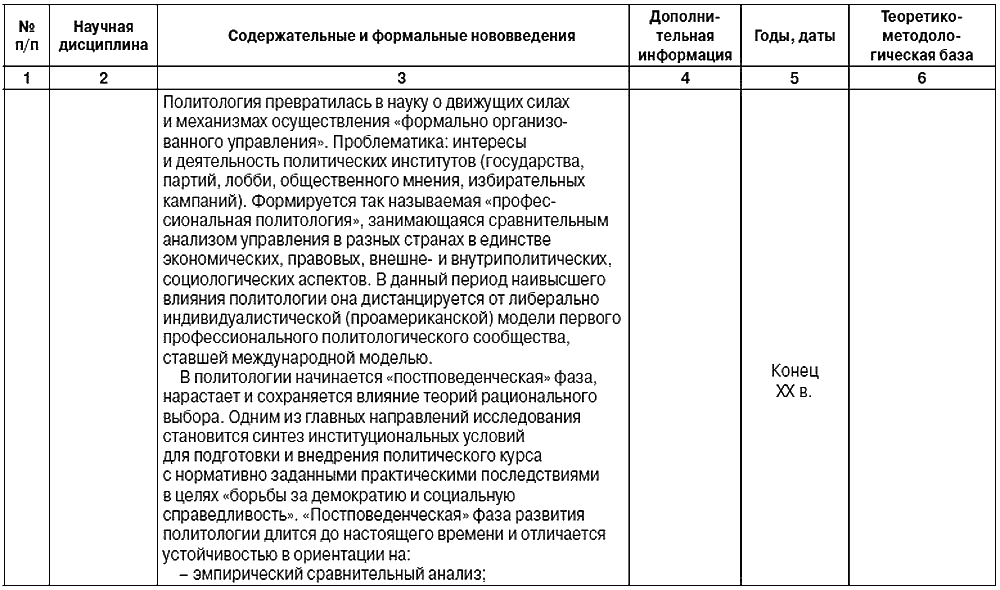 № п/п
Научная дисциплина
Содержательные и формальные нововведения
Дополни-
тельная
информация
Годы, даты
Теоретико-
методоло-
гическая база
1 2 3 4 5 6
Политология превратилась в науку о движущих силах
и механизмах осуществления «формально организо-
ванного управления». Проблематика: интересы
и деятельность политических институтов (государства,
партий, лобби, общественного мнения, избирательных
кампаний). Формируется так называемая «профес-
сиональная политология», занимающаяся сравнительным
анализом управления в разных странах в единстве
экономических, правовых, внешне- и внутриполитических,
социологических аспектов. В данный период наивысшего
влияния политологии она дистанцируется от либерально
индивидуалистической (проамериканской) модели первого
профессионального политологического сообщества,
ставшей международной моделью.
В политологии начинается «постповеденческая» фаза,
нарастает и сохраняется влияние теорий рационального
выбора. Одним из главных направлений исследования
становится синтез институциональных условий
для подготовки и внедрения политического курса
с нормативно заданными практическими последствиями
в целях «борьбы за демократию и социальную
справедливость». «Постповеденческая» фаза развития
политологии длится до настоящего времени и отличается
устойчивостью в ориентации на:
– эмпирический сравнительный анализ;
Конец
XX в.